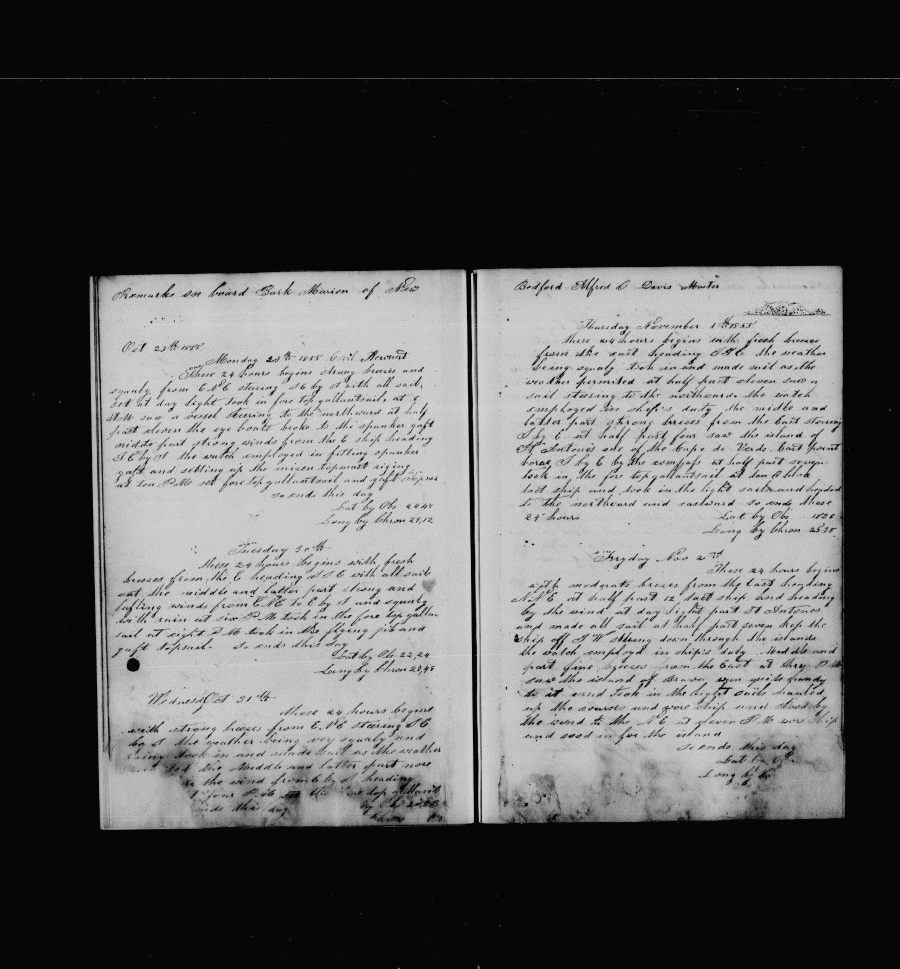 Remarks on board Bark Marion of New
Oct 29th 1888
Monday 29th 1888 Civil Account
These 24 hours begins strong breeses and
squaly from E.N.E stering S E by S with all sail
set at day light took in fore top gallantsails at
A.M saw a vessel steering to the northward at half
past eleven the eye boalts broke to the spanker gaft
middle part strong winds from the E ship heading
S E by S the watch employed in fitting spanker
gaft and setting up the mizen topmast riging
at ten P.M. set fore top gallantsail and gaft topsai
so ends this day
Lat by Obs 24 48
Long by Chron 28,12
Tuesday 30th
These 24 hours begins with fresh
breeses from the E heading S S E with all sail
out the middle and latter part strong and
winds from E.N.E to E by S and squaly
with rain at six P.M took in the fore top gallan
sail at eight P.M took in the flying jib and
gaft topsail. So ends this day
Lat by Obs 22,24
Long by Chron 28,48
Wednesd Oct 31th
These 24 hours begins
with strong breeses from E.N.E stering S E
by S the weather being very squaly and
took in and made sail as the weather
the Meddle and latter part more
the wind from E by S heading
four P.M set the fore top gallansail
ends this day
by Obs
Bedford Alfred C Davis Master
Thursday November 1th 1888
These 24 hours begins with fresh breeses
from the east heading the weather
being squaly took in and made sail as the
weather permited at half past eleven saw a
sail stering to the northward the watch
employed in ship's duty the midle and
latter part strong breeses from the East stering
S by E at half past four saw the island of
St Antonies one of the Cape de Verds East point
bore S by E by the compass at half past seven
took in the fore top gallantsail at ten O clock
tact ship and took in the light sails and headed
to the northward and eastward so ends these
24 hours
Lat by Obs
Long by Chron 25.38
Fryday Nov 2th
These 24 hours begins
with moderate breses from the East heading
N.N.E at half past 12 tact ship and heading
by the wind at day light past St Antones
and made all sail at half past seven kep the
ship off S W stering down through the islands
the watch employd in ship's duty. Meddle and
part fine breeses from the East at P.M
saw the island of Brava, run quite handy
to it and took in the light sails hauled
up the courses and wore ship and stood by
the wind to the N E at eleven P.M wore ship
and stood in for the island
So ends this day
Lat by
Long by